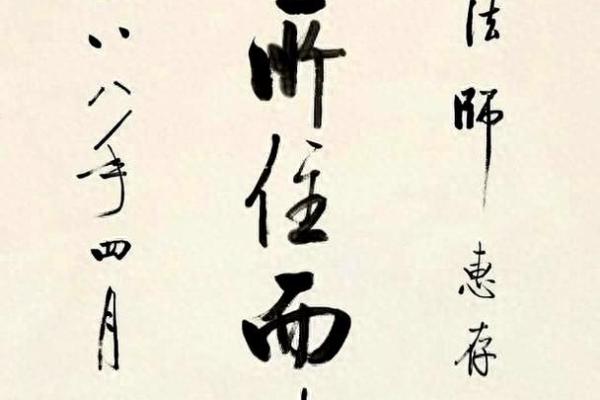 法師惠存
所住而
八八年四月